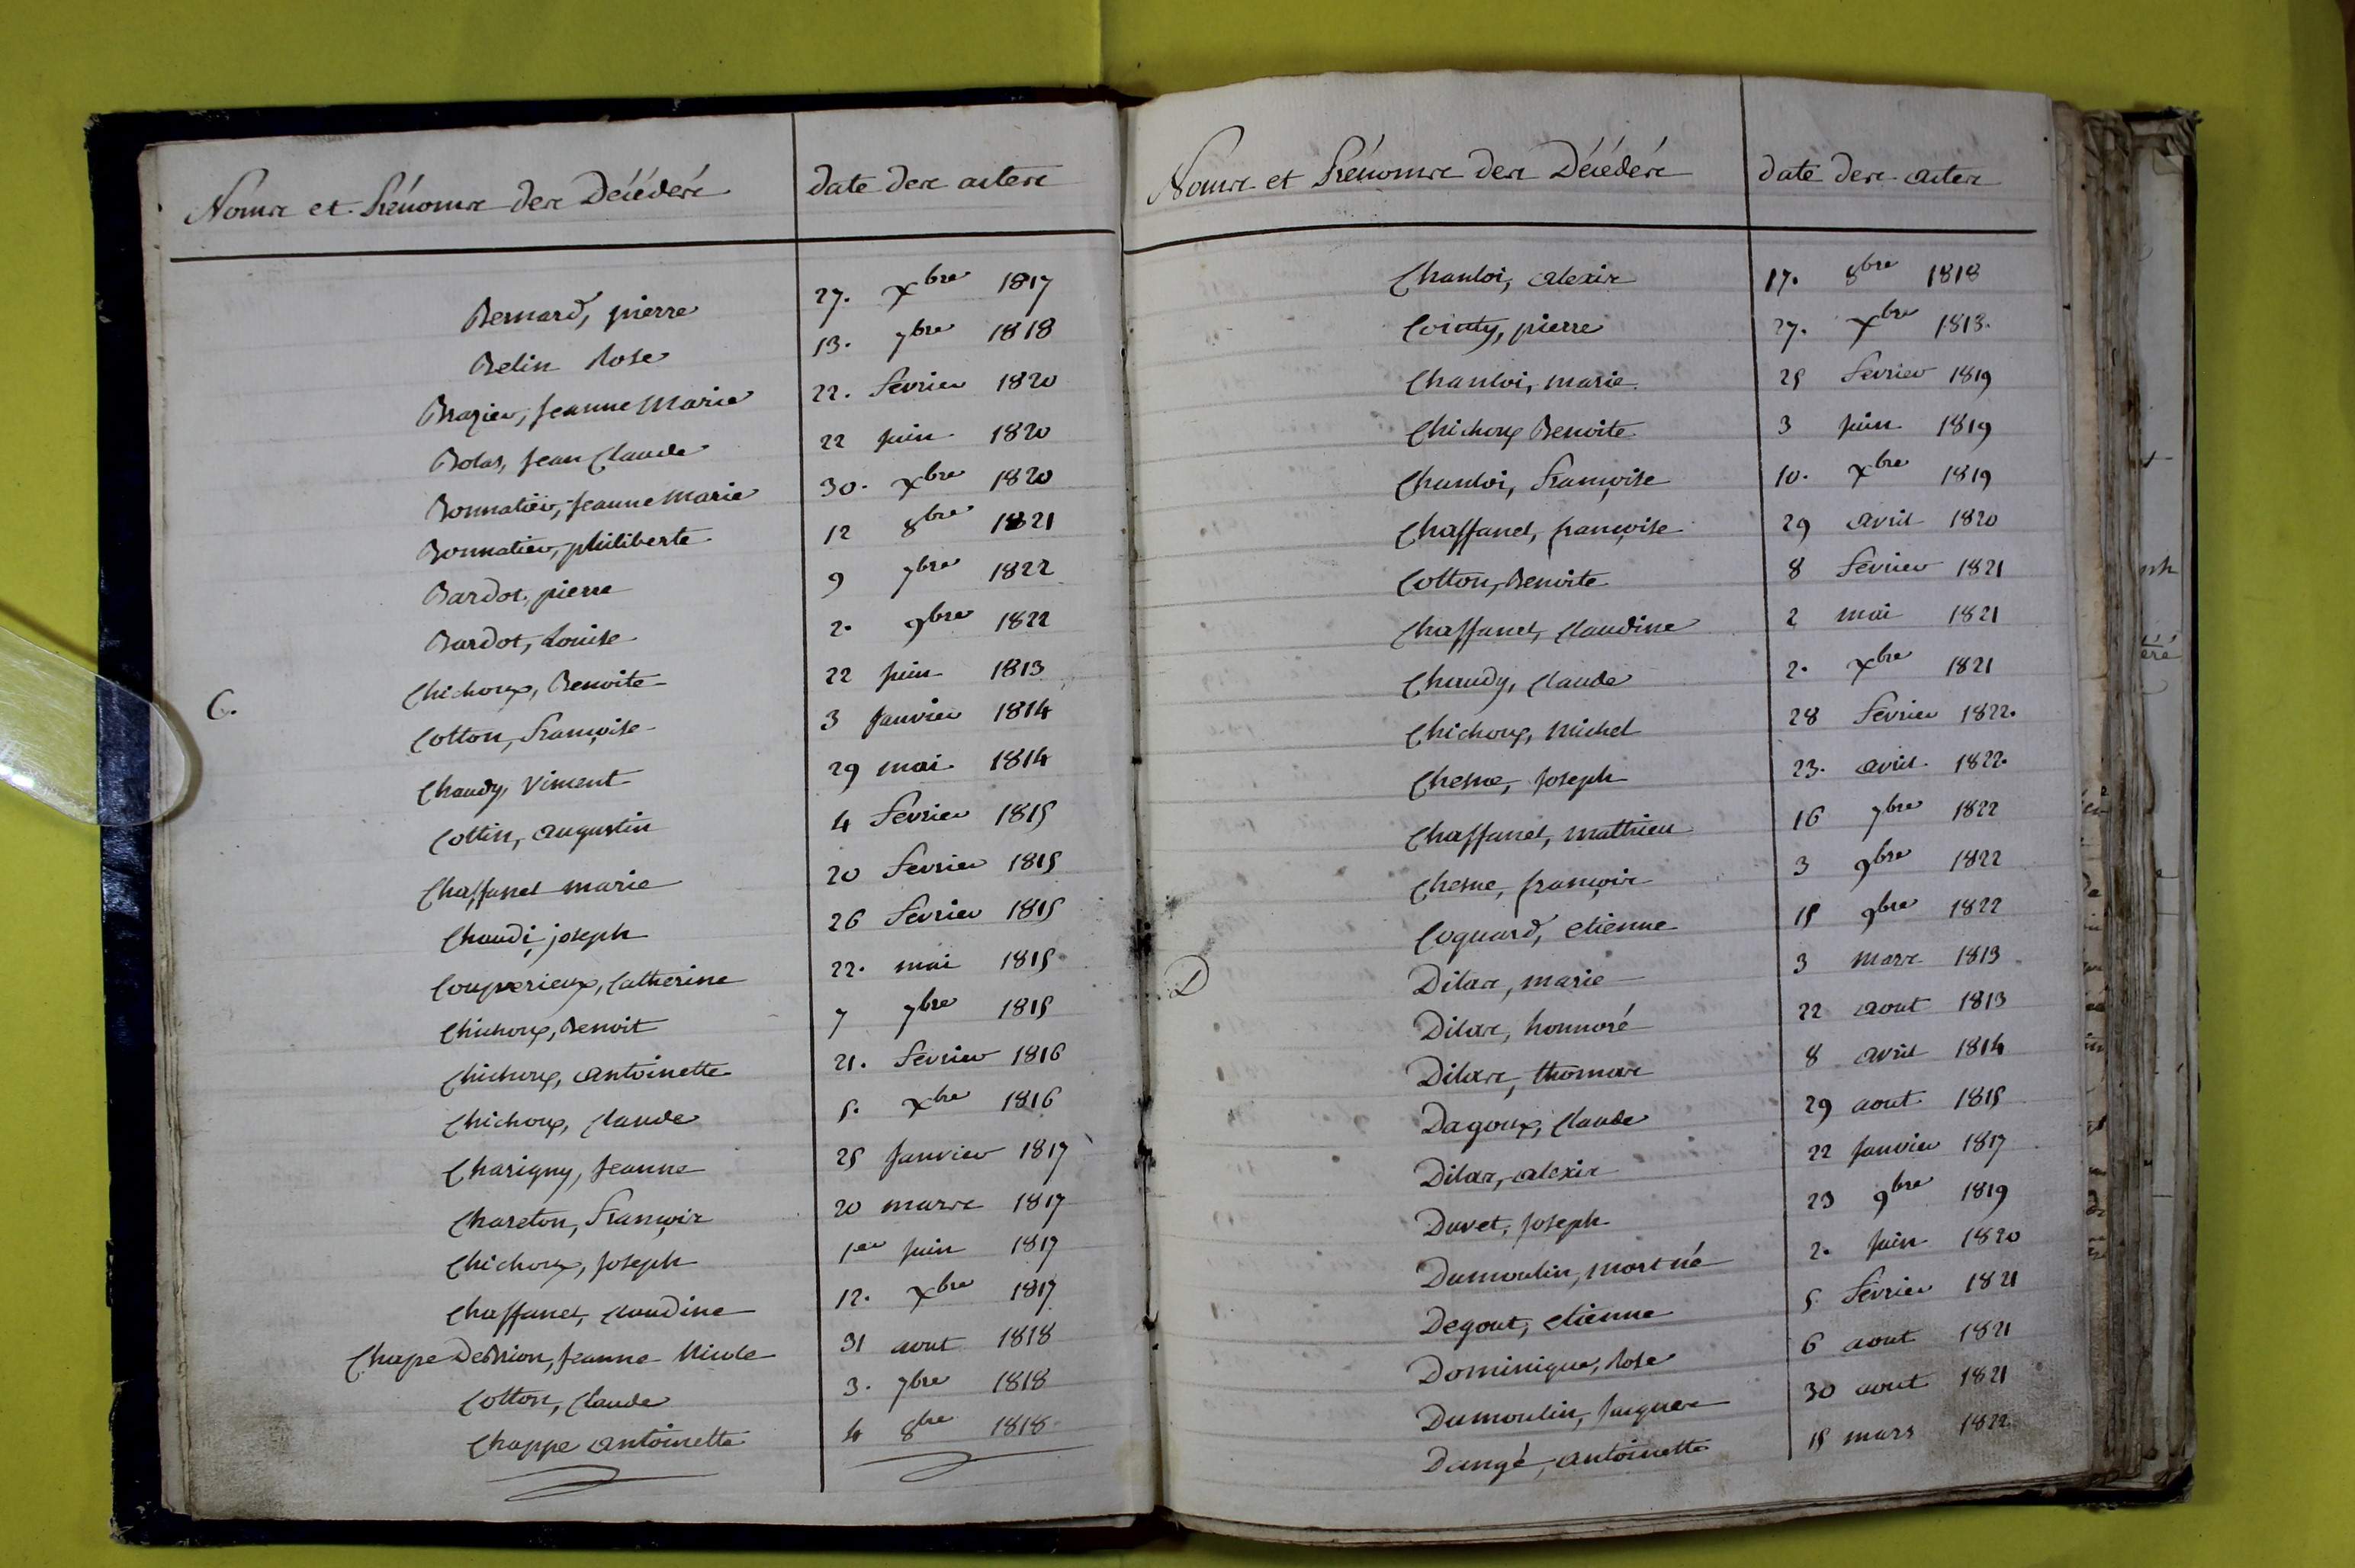 Noms et Prénoms des Décédés date des actes
Bernard, pierre 27. Xbre 1817
Belin Rose 13. 7bre 1818
Brazier, Jeanne Marie 22. Février 1820
Bolas, Jean Claude 22 Juin 1820
Bonnatier, Jeanne Marie 30. Xbre 1820
Bonnatier, philiberte 12 8bre 1821
Bardot, pierre 9 7bre 1822
Bardot, Louise 2. 9bre 1822
C. Chichoux, Benoite 22 Juin 1813
Cotton, Françoise 3 Janvier 1814
Chaudy, Vincent 29 mai 1814
Cottin, augustin 4 Février 1815
Chaffanel marie 20 Février 1815
Chaudi, joseph 26 Février 1815
Couprerieux, Catherine 22. mai 1815
Chichoux, Benoit 7 7bre 1815
Chichoux, antoinette 21. Février 1816
Chichoux, Claude 5. Xbre 1816
Charigny, Jeanne 25 Janvier 1817
Chareton, François 20 mars 1817
Chichoux, Joseph 1er Juin 1817
Chaffanel, Claudine 12. Xbre 1817
Chape DeBrion, Jeanne Nicole 31 aout 1818
Cotton, Claude 3. 7bre 1818
Chappe antoinette 4 8bre 1818
Noms et Prénoms des Décédés date des actes
Chanloi, alexis 17. 8bre 1818
pierre 27. Xbre 1813.
Chanloi, marie 25 Février 1819
Chichoux Benoite 3 Juin 1819
Chanloi, Françoise 10. Xbre 1819
Chaffanel, françoise 29 avril 1820
Cotton, Benoite 8 Février 1821
Chaffanel, Claudine 2 mai 1821
Chaudy, Claude 2. Xbre 1821
Chichoux, Michel 28 Février 1822.
Chesne, Joseph 23. avril 1822.
Chaffanel, mathieu 16 7bre 1822
Chesne, françois 3 9bre 1822
Coquard, etienne 15 9bre 1822
D Dilas, marie 3 Mars 1813
Dilas, honnoré 22 aout 1813
Dilas, thomas 8 avril 1814
Dagoux, Claude 29 aout 1815
Dilas, alexis 22 Janvier 1817
Duvet, Joseph 23 9bre 1819
Dumoulin, mort né 2. Juin 1820
Degout, etienne 5 Février 1821
Dominique, Rose 6 aout 1821
Dumoulin, Jacques 30 aout 1821
Dangé, antoinette 15 mars 1822